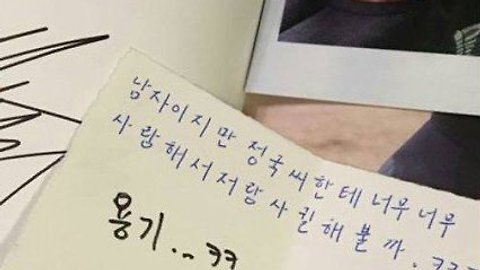 남자이지만 정국씨한테 너무너무
사랑해서 저랑 사귈해 볼까. ㅋㅋ
용기.. ㅋㅋ